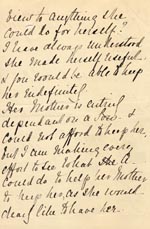 view to anything she
could do for herself?
I have always understood
she made herself useful
& you would be able to keep
her indefinitely.
Her Mother is entirely
dependant on a Son - &
could not afford to keep her,
but I am making every
effort to see what she
could do to help her Mother
to keep her, as she would
dearly like to have her.